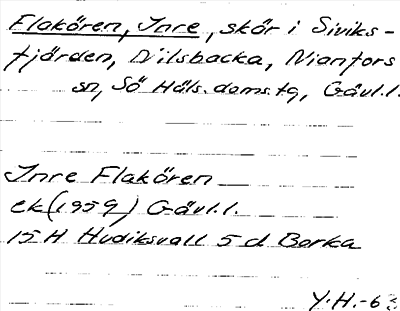 Flakören, Inre, skär i Siviks-
fjärden, Nilsbacka, Nianfors
sn, Sö Häls. doms.tg, Gävl.l.
Inre Flakören
ek (1959) Gävl.l.
15H Hudiksvall 5 d Borka
Y.H.-63